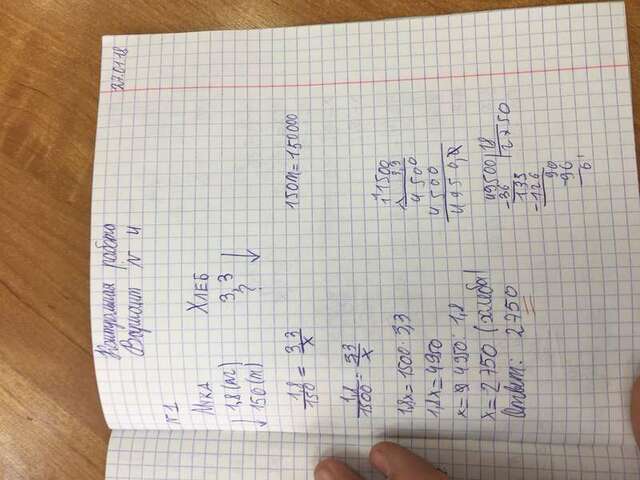 27.01.18
Контрольная работа
Вариант № 4
№1
Мука Хлеб
1,8 (кг) 3,3
150 (т) ?
1,8/150 = 3,3/x 150т = 150000
1,8/1500 = 3,3/x
1,8x = 1500 · 3,3
1,8x = 4950
x = 4950 : 1,8
x = 2750 (хлеба)
Ответ: 2750
1500
3,3
4500
4500
4950,0
49500 18
-36 2750
135
-126
90
-90
0